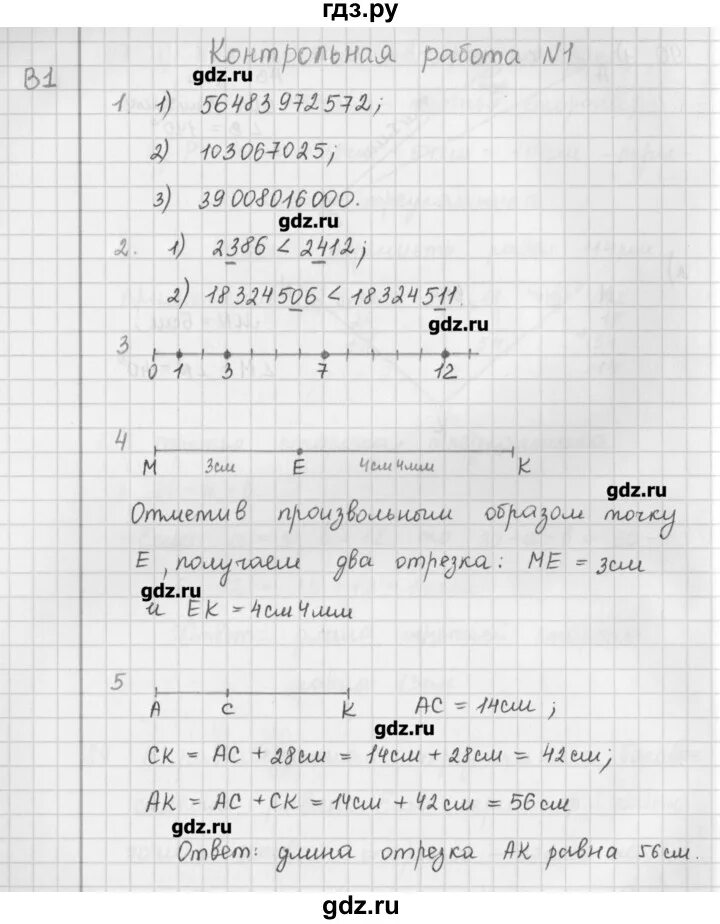 гдз.ру
Контрольная работа N1
gdz.ru
В1
1. 1) 56483972572;
2) 103067025;
3) 39008016000.
gdz.ru
2. 1) 2386 < 2412;
2) 18324506 < 18324511.
gdz.ru
3
0 1 3 7 12
4
M 3см E 4см4мм K
gdz.ru
Отметив произвольным образом точку
E, получаем два отрезка: ME = 3см
gdz.ru
и EK = 4см4мм
5
A C K AC = 14см;
gdz.ru
CK = AC + 28см = 14см + 28см = 42см;
AK = AC + CK = 14см + 42см = 56см
gdz.ru
Ответ: длина отрезка AK равна 56см.
gdz.ru